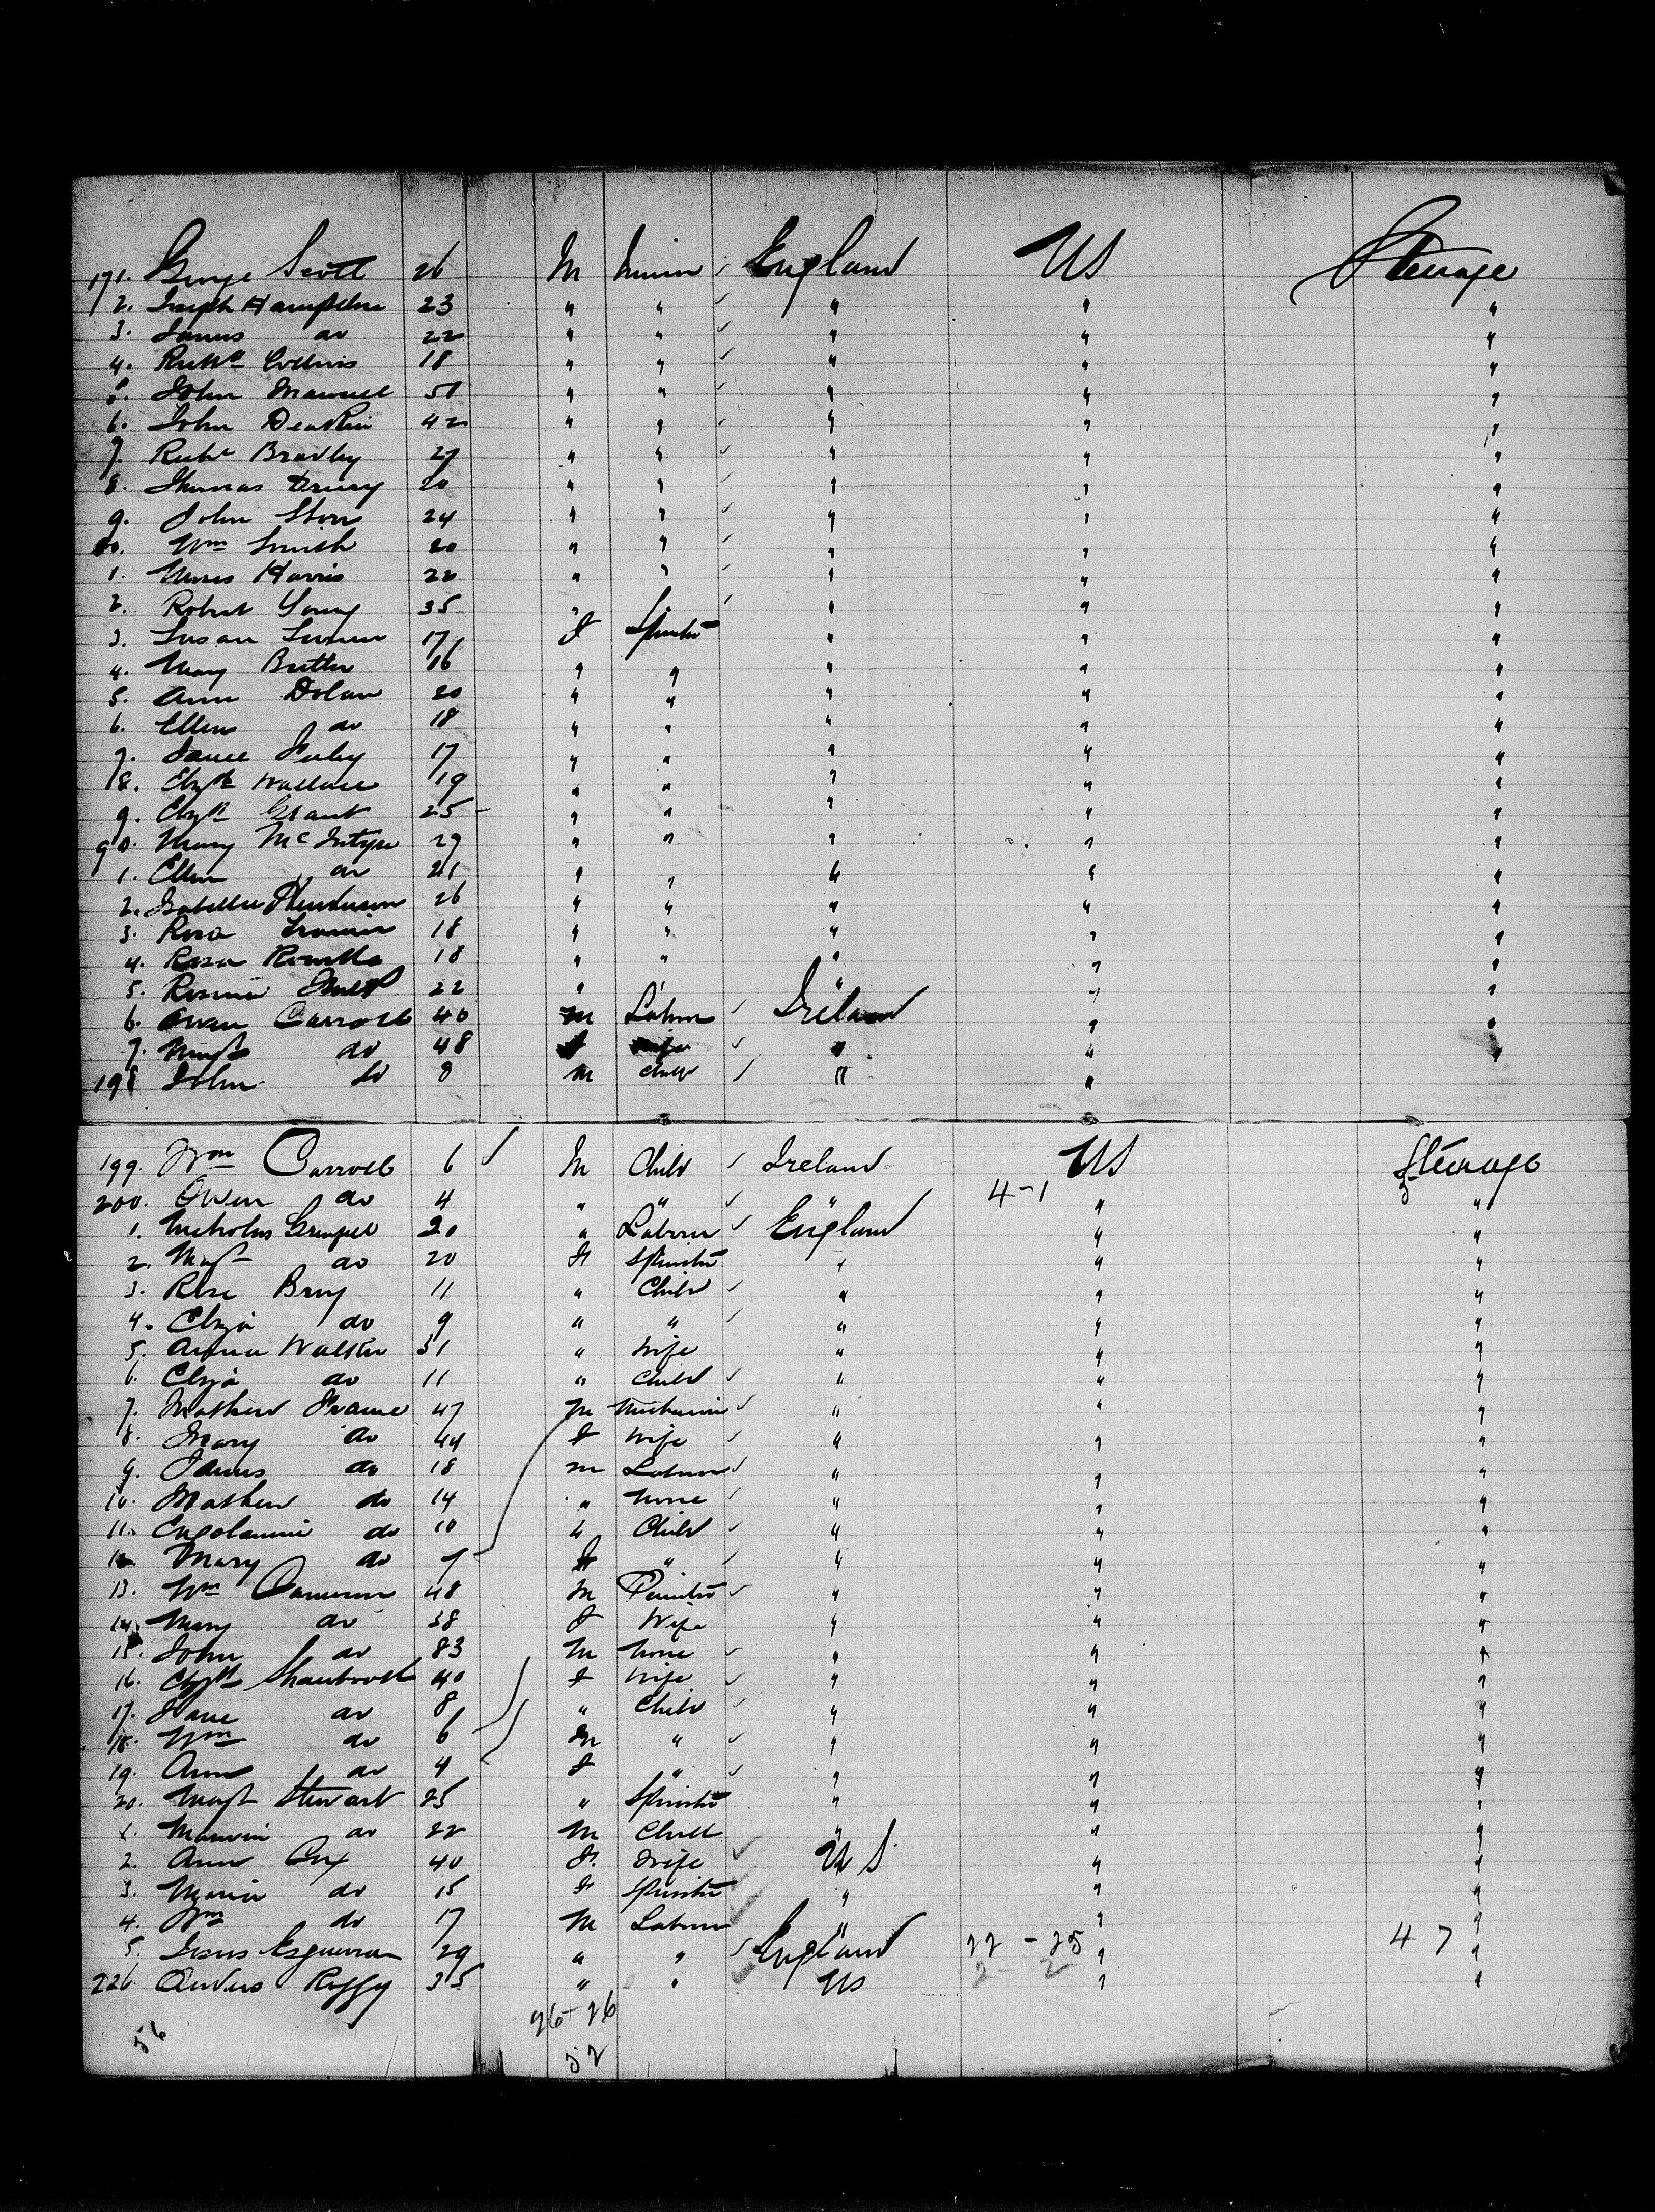 171. George Scott 26 M Miner England US Steerage
2. Joseph Hampton 23 " " " " "
3. James do 22 " " " " "
4. Richd Collins 18 " " " " "
5. John 50 " " " " "
6. John Deakin 42 " " " " "
7. Richd Bradley 27 " " " " "
8. Thomas Drury 20 " " " " "
9. John Storr 24 " " " " "
80. Wm Smith 20 " " " " "
1. Moses Harris 22 " " " " "
2. Robert Young 35 " " " " "
3. Susan 17 F Spinster " " "
4. Mary Butler 16 " " " " "
5. Ann Dolan 20 " " " " "
6. Ellen do 18 " " " " "
7. 17 " " " " "
8. Elizth Wallace 19 " " " " "
9. Elizth Grant 25 " " " " "
90. Mary McIntyre 29 " " " " "
1. Ellen do 21 " " " " "
2. Isabella Henderson 26 " " " " "
3. Rosa 18 " " " " "
4. Rosa 18 " " " " "
5. 22 " " "
6. Owen Carroll 40 M Labour Ireland " "
7. Margt do 48 F Wife " " "
198 John do 8 M Child " " "
199. Wm Carroll 6 M Child Ireland US Steerage
200. Owen do 4 " " " 4-1 " "
1. Nicholas 20 " Labour England " "
2. Margt do 20 F Spinster " " "
3. Rose Bray 11 " Child " " "
4. Eliza do 9 " " " " "
5. Anna Walker 31 " Wife " " "
6. Eliza do 11 " Child " " "
7. Mathew Frame 47 M Mechanic " " "
8. Mary do 44 F Wife " " "
9. James do 18 M Labour " " "
10. Mathew do 14 " None " " "
11. do 10 " Child " " "
12. Mary do 7 F " " " "
13. Wm Cameron 48 M " " "
14. Mary do 38 F Wife " " "
15. John do 83 M None " " "
16. Elizth 40 F Wife " " "
17. Jane do 8 " Child " " "
18. Wm do 6 M " " " "
19. Ann do 4 F " " " "
20. Margt Stewart 25 " Spinster " " "
1. do 22 M Child " " "
2. Ann Cox 40 F. Wife US " "
3. Maria do 15 F Spinster " " "
4. Wm do 17 M Labour " " "
5. 29 " " England 22-25 " 47 "
226 35 " " US 2-2 " "
26-26
56
52